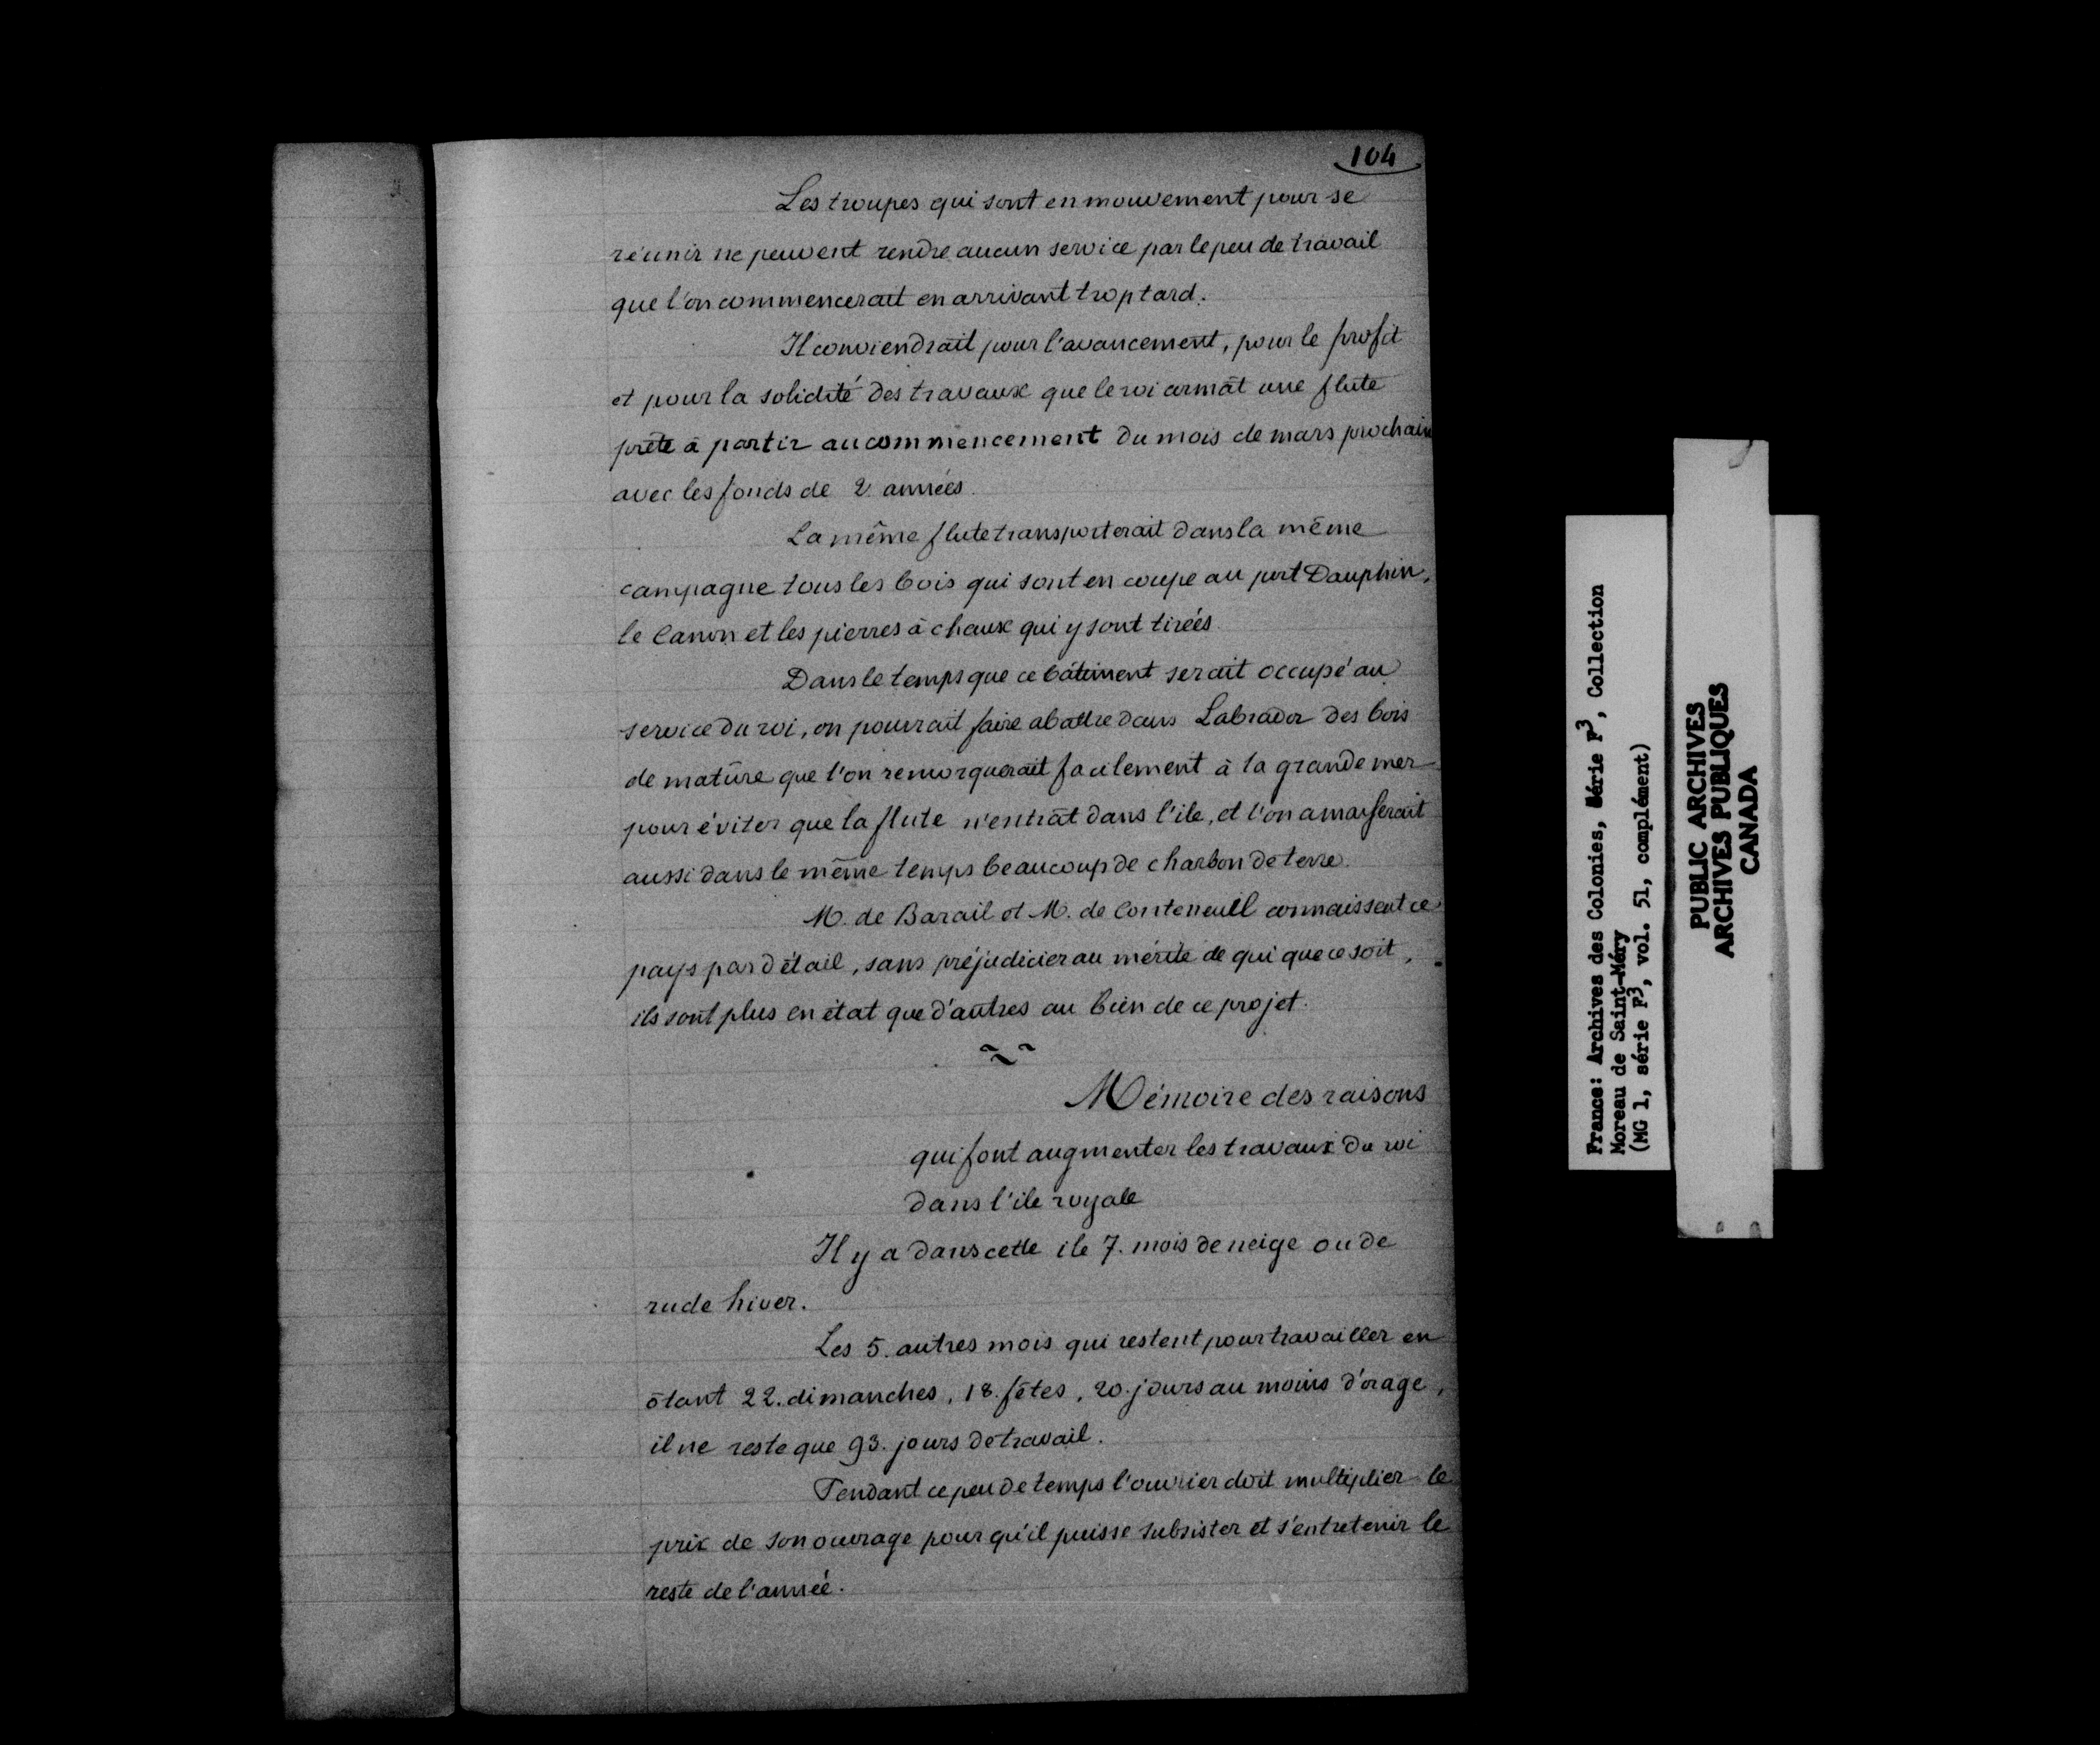 104
Les troupes qui sont en mouvement pour se
réunir ne peuvent rendre aucun service par le peu de travail
que l'on commencerait en arrivant trop tard.
Il conviendrait pour l'avancement, pour le profit
et pour la solidité des travaux que le roi armât une flute
prête à partir au commencement du mois de mars prochain
avec les fonds de 2 années.
La même flute transporterait dans la même
campagne tous les bois qui sont en coupe au port Dauphin,
le Canon et les pierres à chaux qui y sont tirées.
Dans le temps que ce bâtiment serait occupé au
service du roi, on pourrait faire abattre dans Labrador des bois
de mature que l'on remorquerait facilement à la grande mer
pour éviter que la flute n'entrât dans l'ile, et l'on amasserait
aussi dans le même temps beaucoup de charbon de terre.
M. de Barail et M. de Conteneuil connaissent ce
pays par détail, sans préjudicier au mérite de qui que ce soit,
ils sont plus en état que d'autres au bien de ce projet.
Mémoire des raisons
qui font augmenter les travaux du roi
dans l'ile royale
Il y a dans cette ile 7. mois de neige ou de
rude hiver.
Les 5. autres mois qui restent pour travailler en
ôtant 22. dimanches, 18. fêtes, 20. jours au moins d'orage,
il ne reste que 93. jours de travail.
Pendant ce peu de temps l'ouvrier doit multiplier le
prix de son ouvrage pour qu'il puisse subsister et s'entretenir le
reste de l'année.
France: Archives des Colonies, Série F3, Collection
Moreau de Saint-Méry
(MG 1, série F3, vol. 51, complément)
PUBLIC ARCHIVES
ARCHIVES PUBLIQUES
CANADA